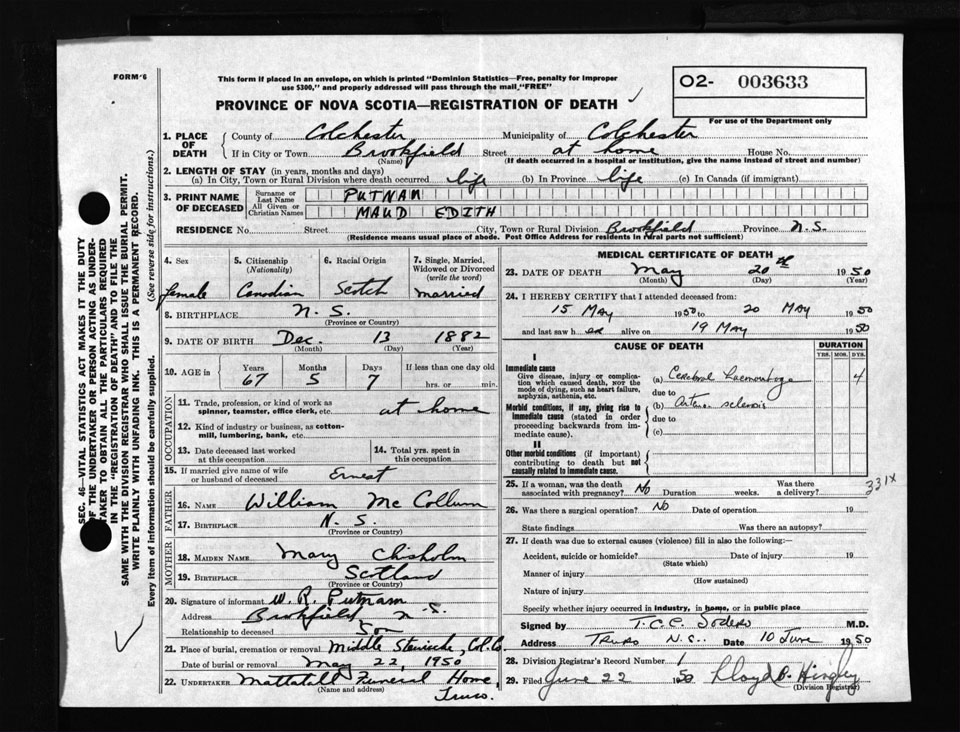 FORM 6
This form if placed in an envelope, on which is printed "Dominion Statistics—Free, penalty for improper
use $300," and properly addressed will pass through the mail "FREE"
O2- 003633
For use of the Department only
PROVINCE OF NOVA SCOTIA—REGISTRATION OF DEATH
1. PLACE OF DEATH { County of Colchester Municipality of Colchester
If in City or Town Brookfield Street at home House No.
(Name) (If death occurred in a hospital or institution, give the name instead of street and number)
2. LENGTH OF STAY (in years, months and days)
(a) In City, Town or Rural Division where death occurred life (b) In Province life (c) In Canada (if immigrant)
3. PRINT NAME OF DECEASED { Surname or Last Name PUTNAM
All Given or Christian Names MAUD EDITH
RESIDENCE No. Street City, Town or Rural Division Brookfield Province N.S.
(Residence means usual place of abode. Post Office Address for residents in rural parts not sufficient)
4. Sex female
5. Citizenship (Nationality) Canadian
6. Racial Origin Scotch
7. Single, Married, Widowed or Divorced (write the word) married
8. BIRTHPLACE N.S.
(Province or Country)
9. DATE OF BIRTH Dec. 13 1882
(Month) (Day) (Year)
10. AGE in Years 67 Months 5 Days 7 If less than one day old hrs. or min.
OCCUPATION
11. Trade, profession, or kind of work as
spinner, teamster, office clerk, etc. at home
12. Kind of industry or business, as cotton-
mill, lumbering, bank, etc.
13. Date deceased last worked at this occupation
14. Total yrs. spent in this occupation
15. If married give name of wife
or husband of deceased Ernest
FATHER
16. Name William McCollum
17. Birthplace N.S.
(Province or Country)
MOTHER
18. Maiden Name Mary Chisholm
19. Birthplace Scotland
(Province or Country)
20. Signature of informant W. R. Putnam
Address Brookfield N.S.
Relationship to deceased Son
21. Place of burial, cremation or removal Middle Stewiacke, Col. Co.
Date of burial or removal May 22, 1950
22. Undertaker Mattatall Funeral Home,
(Name and address) Truro.
MEDICAL CERTIFICATE OF DEATH
23. DATE OF DEATH May 20th 1950
(Month) (Day) (Year)
24. I HEREBY CERTIFY that I attended deceased from:
15 May 1950 to 20 May 1950
and last saw her alive on 19 May 1950
CAUSE OF DEATH DURATION
YRS. MOS. DYS.
I
Immediate cause
Give disease, injury or complica-
tion which caused death, NOT the
mode of dying, such as heart failure,
asphyxia, asthenia, etc.
(a) Cerebral haemorrhage 4
due to
Morbid conditions, if any, giving rise to
immediate cause (stated in order
proceeding backwards from im-
mediate cause).
(b) Arterio sclerosis
due to
(c)
II
Other morbid conditions (if important)
contributing to death but not
causally related to immediate cause.
25. If a woman, was the death associated with pregnancy? No Duration weeks. Was there a delivery?
331x
26. Was there a surgical operation? No Date of operation 19
State findings Was there an autopsy?
27. If death was due to external causes (violence) fill in also the following:—
Accident, suicide or homicide? Date of injury 19
(State which)
Manner of injury
(How sustained)
Nature of injury
Specify whether injury occurred in industry, in home, or in public place
Signed by T.C.C. Sodero M.D.
Address Truro N.S. Date 10 June 1950
28. Division Registrar's Record Number 1
29. Filed June 22 1950 Lloyd B. Hingley
(Division Registrar)
SEC. 46—VITAL STATISTICS ACT MAKES IT THE DUTY
OF THE UNDERTAKER OR PERSON ACTING AS UNDER-
TAKER TO OBTAIN ALL THE PARTICULARS REQUIRED
IN THE "REGISTRATION OF DEATH" AND TO FILE THE
SAME WITH THE DIVISION REGISTRAR WHO SHALL ISSUE THE BURIAL PERMIT.
WRITE PLAINLY WITH UNFADING INK. THIS IS A PERMANENT RECORD.
Every item of information should be carefully supplied. (See reverse side for instructions.)